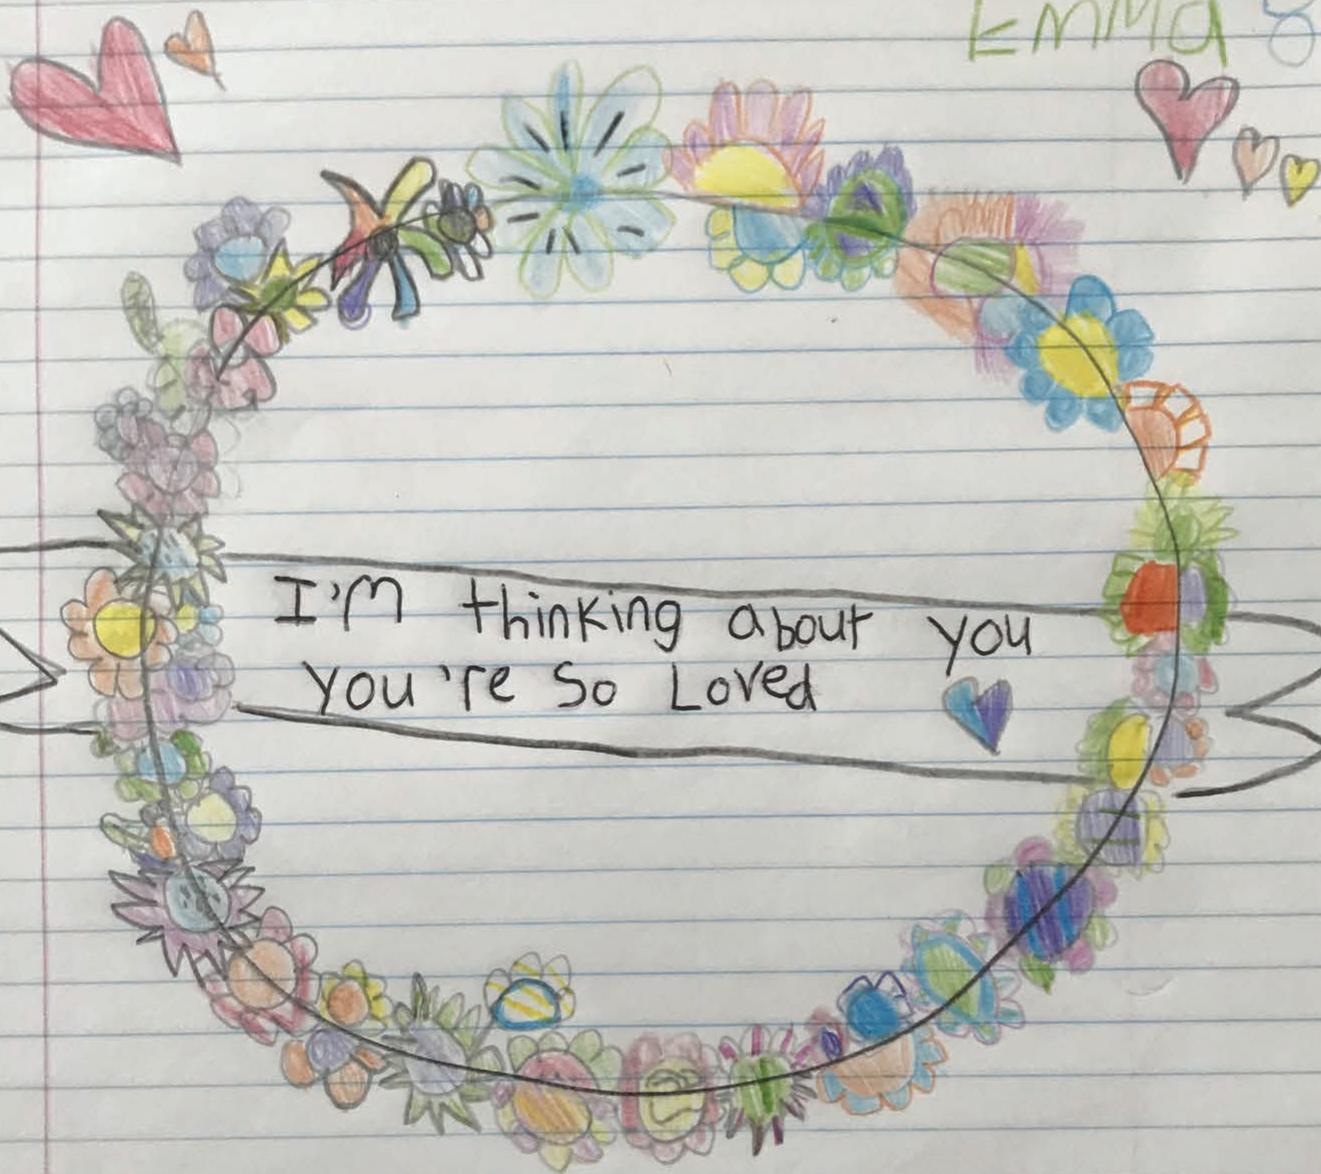 Emma 8
I'm thinking about you
you're so Loved